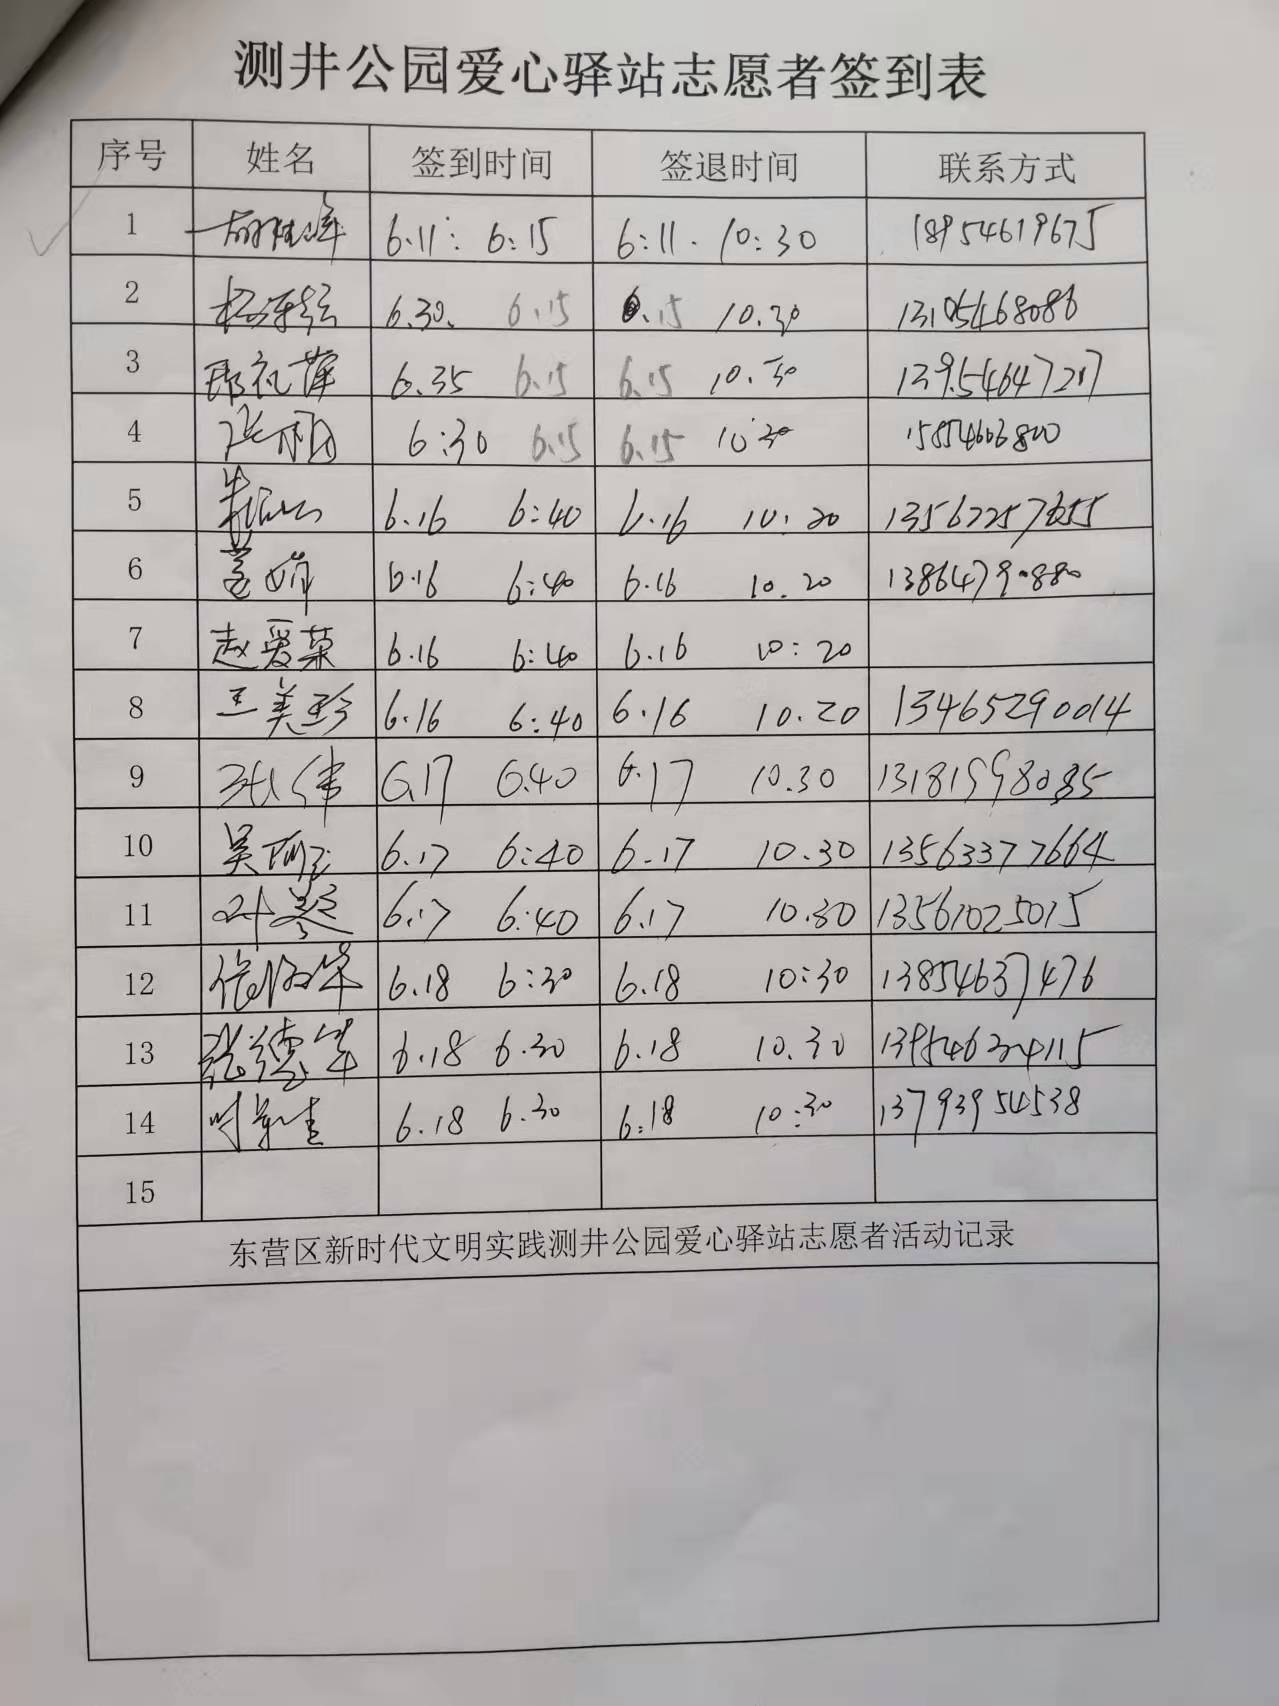 测井公园爱心驿站志愿者签到表
序号 姓名 签到时间 签退时间 联系方式
1 6.11: 6:15 6:11. 10:30 18954619675
2 6.30. 6.15 6.15 10.30 13105468086
3 6.35 6.15 6.15 10.30
4 6:30 6.15 6.15 10:30 15854606800
5 6.16 6:40 6.16 10:20
6 6.16 6:40 6.16 10.20
7 赵爱荣 6.16 6:40 6.16 10:20
8 王美珍 6.16 6:40 6.16 10.20 13465290014
9 张伟 6.17 6.40 6.17 10.30
10 6.17 6:40 6.17 10.30 13563377664
11 6.17 6:40 6.17 10.30 13561025015
12 6.18 6:30 6.18 10:30 13854637476
13 张德华 6.18 6.30 6.18 10.30
14 6.18 6.30 6:18 10:30 13793954538
15
东营区新时代文明实践测井公园爱心驿站志愿者活动记录